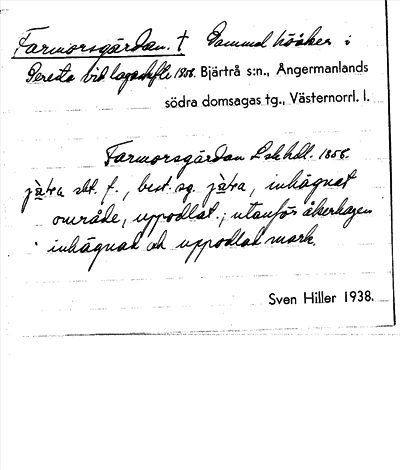 Farmorsgärdan. † Samma höåker i
Geresta vid lagaskifte 1858. Bjärtrå s:n., Ångermanlands
södra domsagas tg., Västernorrl. l.
Farmorsgärdan L sk hdl. 1858.
jätra sbt. f., best. sg. jätra, inhägnat
område, uppodlat; utanför åkerhagen
inhägnat och uppodlat mark.
Sven Hiller 1938.